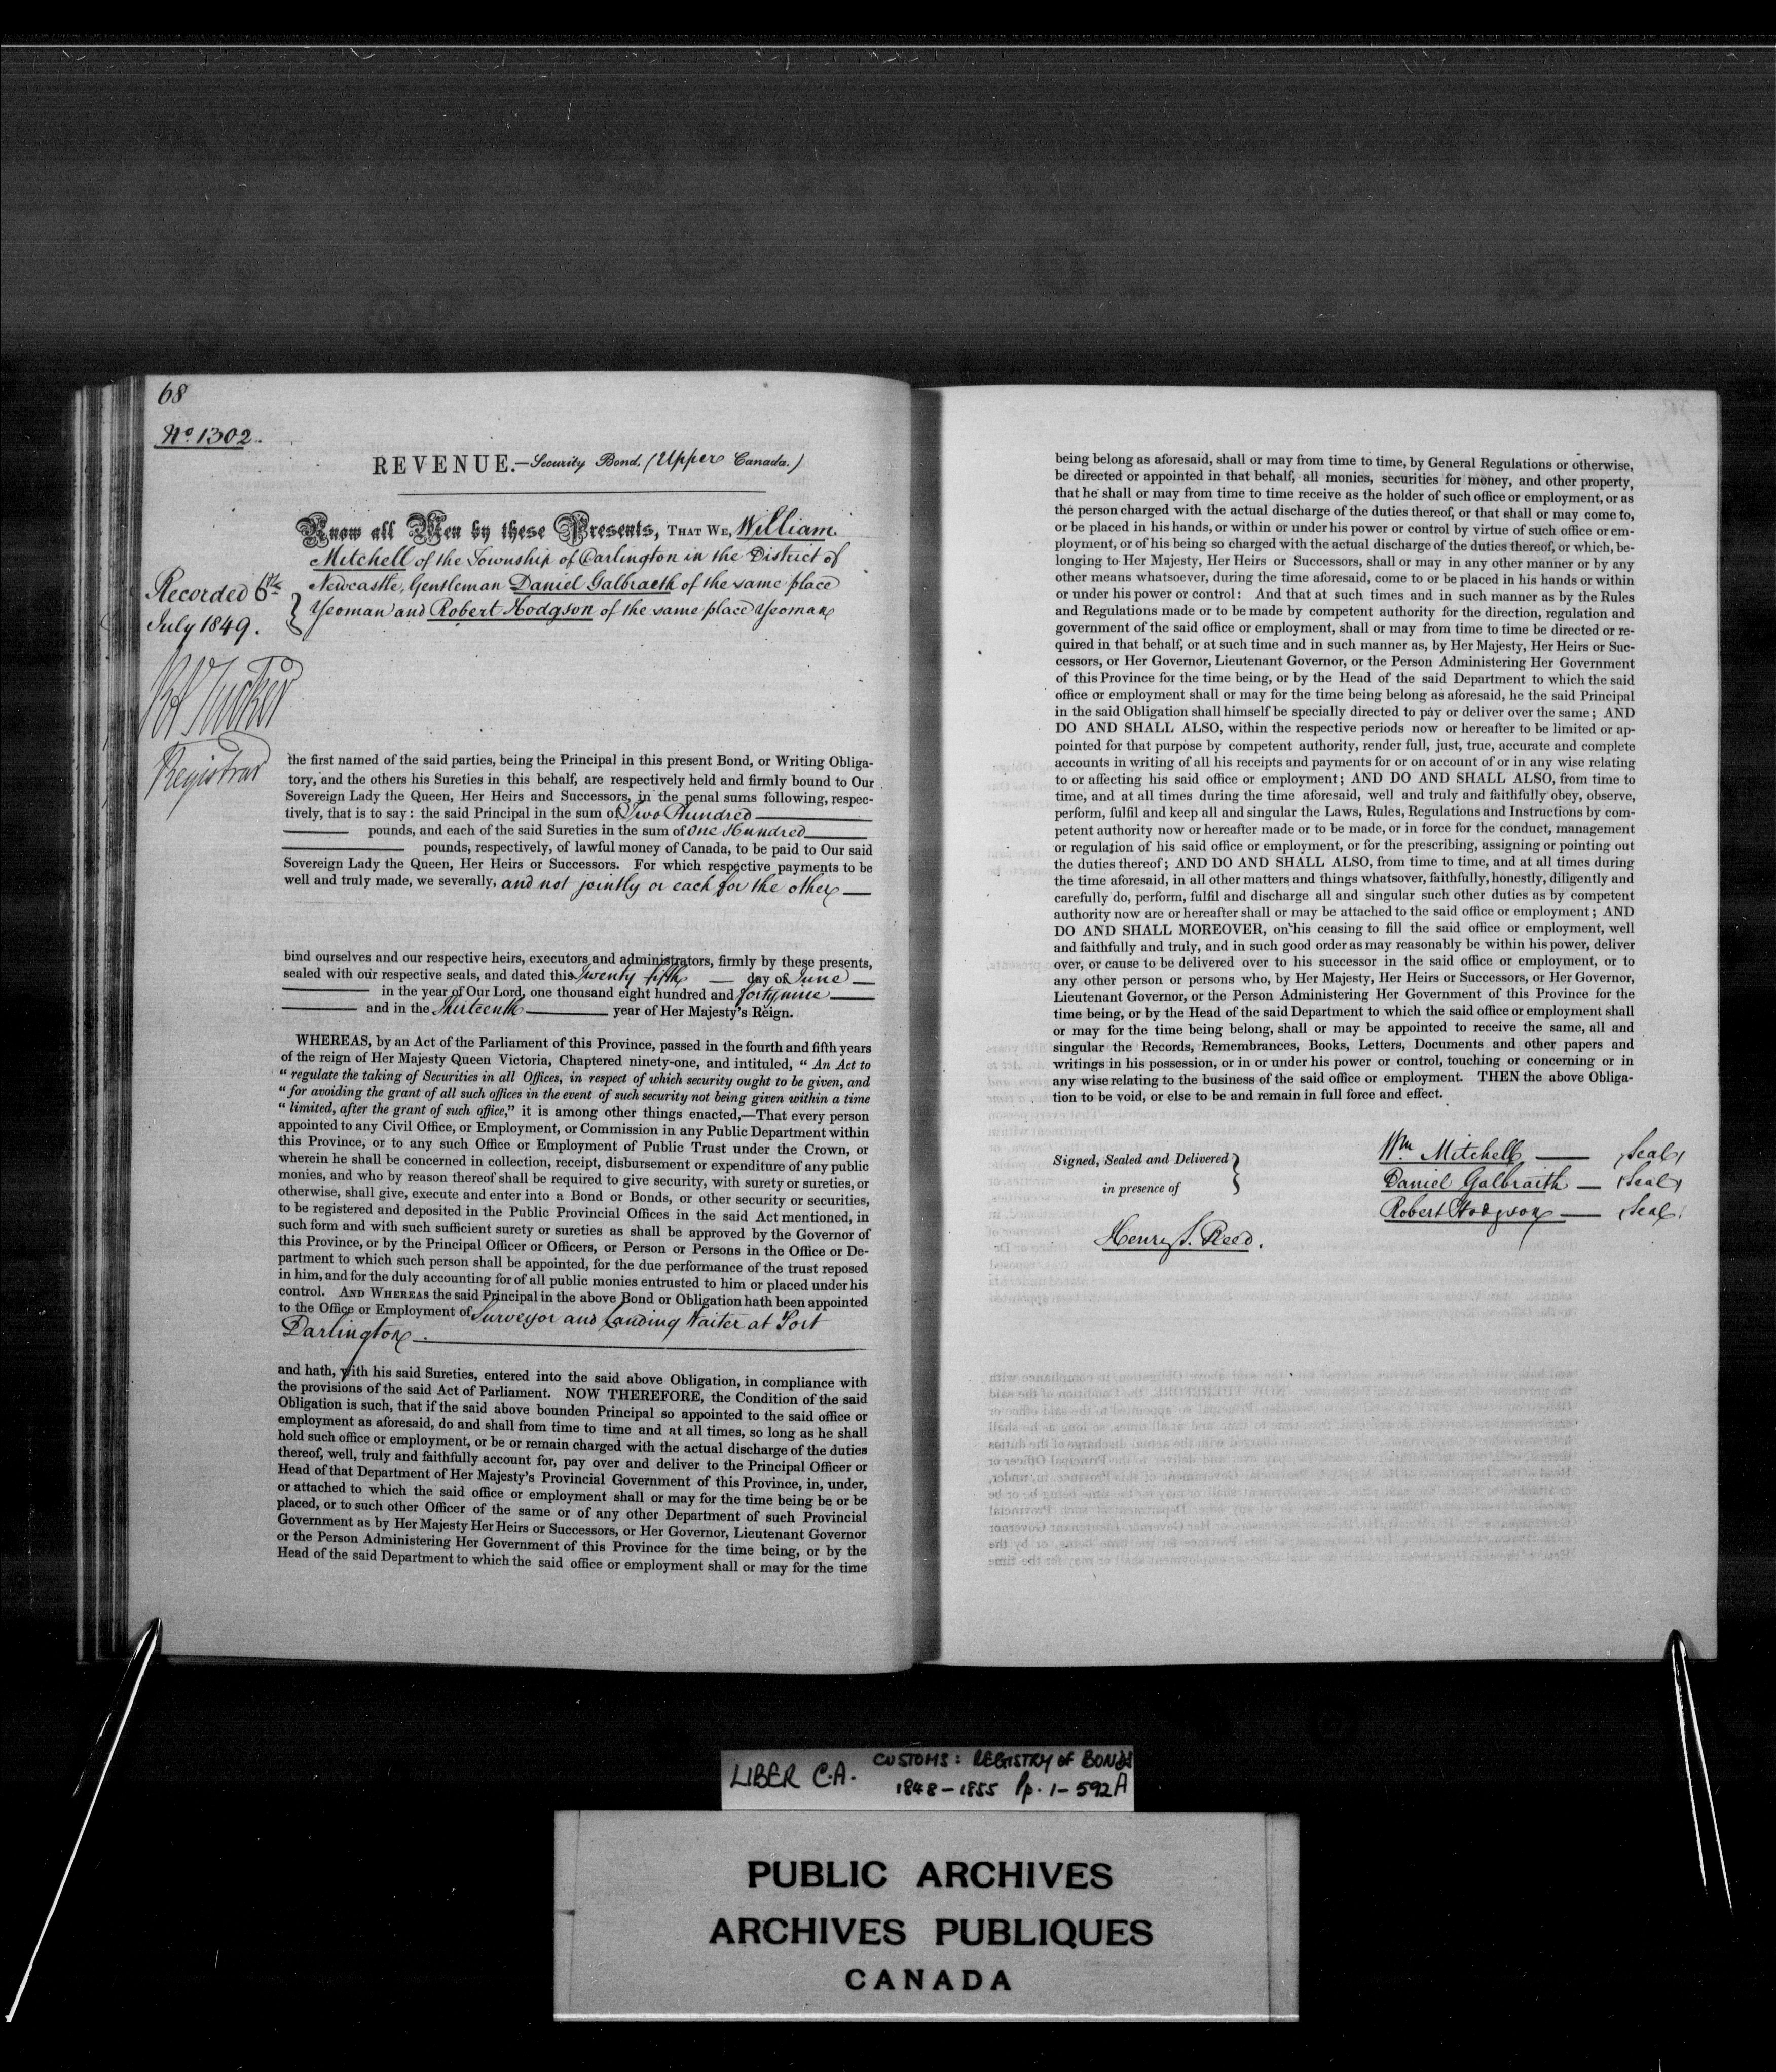 68
No. 1302.
REVENUE.—Security Bond, (Upper Canada.)
Know all Men by these Presents, THAT WE, William
Mitchell of the Township of Darlington in the District of
Newcastle, Gentleman Daniel Galbraith of the same place
Yeoman and Robert Hodgson of the same place Yeoman
Recorded 6th
July 1849.
Tucker
Registrar
the first named of the said parties, being the Principal in this present Bond, or Writing Obliga-
tory, and the others his Sureties in this behalf, are respectively held and firmly bound to Our
Sovereign Lady the Queen, Her Heirs and Successors, in the penal sums following, respec-
tively, that is to say: the said Principal in the sum of Two Hundred
pounds, and each of the said Sureties in the sum of One Hundred
pounds, respectively, of lawful money of Canada, to be paid to Our said
Sovereign Lady the Queen, Her Heirs or Successors. For which respective payments to be
well and truly made, we severally, and not jointly or each for the other
bind ourselves and our respective heirs, executors and administrators, firmly by these presents,
sealed with our respective seals, and dated this Twenty fifth — day of June
in the year of Our Lord, one thousand eight hundred and forty nine
and in the Thirteenth year of Her Majesty's Reign.
WHEREAS, by an Act of the Parliament of this Province, passed in the fourth and fifth years
of the reign of Her Majesty Queen Victoria, Chaptered ninety-one, and intituled, " An Act to
" regulate the taking of Securities in all Offices, in respect of which security ought to be given, and
" for avoiding the grant of all such offices in the event of such security not being given within a time
" limited, after the grant of such office," it is among other things enacted,—That every person
appointed to any Civil Office, or Employment, or Commission in any Public Department within
this Province, or to any such Office or Employment of Public Trust under the Crown, or
wherein he shall be concerned in collection, receipt, disbursement or expenditure of any public
monies, and who by reason thereof shall be required to give security, with surety or sureties, or
otherwise, shall give, execute and enter into a Bond or Bonds, or other security or securities,
to be registered and deposited in the Public Provincial Offices in the said Act mentioned, in
such form and with such sufficient surety or sureties as shall be approved by the Governor of
this Province, or by the Principal Officer or Officers, or Person or Persons in the Office or De-
partment to which such person shall be appointed, for the due performance of the trust reposed
in him, and for the duly accounting for of all public monies entrusted to him or placed under his
control. AND WHEREAS the said Principal in the above Bond or Obligation hath been appointed
to the Office or Employment of Surveyor and Landing Waiter at Port
Darlington.
and hath, with his said Sureties, entered into the said above Obligation, in compliance with
the provisions of the said Act of Parliament. NOW THEREFORE, the Condition of the said
Obligation is such, that if the said above bounden Principal so appointed to the said office or
employment as aforesaid, do and shall from time to time and at all times, so long as he shall
hold such office or employment, or be or remain charged with the actual discharge of the duties
thereof, well, truly and faithfully account for, pay over and deliver to the Principal Officer or
Head of that Department of Her Majesty's Provincial Government of this Province, in, under,
or attached to which the said office or employment shall or may for the time being be or be
placed, or to such other Officer of the same or of any other Department of such Provincial
Government as by Her Majesty Her Heirs or Successors, or Her Governor, Lieutenant Governor
or the Person Administering Her Government of this Province for the time being, or by the
Head of the said Department to which the said office or employment shall or may for the time
being belong as aforesaid, shall or may from time to time, by General Regulations or otherwise,
be directed or appointed in that behalf, all monies, securities for money, and other property,
that he shall or may from time to time receive as the holder of such office or employment, or as
the person charged with the actual discharge of the duties thereof, or that shall or may come to,
or be placed in his hands, or within or under his power or control by virtue of such office or em-
ployment, or of his being so charged with the actual discharge of the duties thereof, or which, be-
longing to Her Majesty, Her Heirs or Successors, shall or may in any other manner or by any
other means whatsoever, during the time aforesaid, come to or be placed in his hands or within
or under his power or control: And that at such times and in such manner as by the Rules
and Regulations made or to be made by competent authority for the direction, regulation and
government of the said office or employment, shall or may from time to time be directed or re-
quired in that behalf, or at such time and in such manner as, by Her Majesty, Her Heirs or Suc-
cessors, or Her Governor, Lieutenant Governor, or the Person Administering Her Government
of this Province for the time being, or by the Head of the said Department to which the said
office or employment shall or may for the time being belong as aforesaid, he the said Principal
in the said Obligation shall himself be specially directed to pay or deliver over the same; AND
DO AND SHALL ALSO, within the respective periods now or hereafter to be limited or ap-
pointed for that purpose by competent authority, render full, just, true, accurate and complete
accounts in writing of all his receipts and payments for or on account of or in any wise relating
to or affecting his said office or employment; AND DO AND SHALL ALSO, from time to
time, and at all times during the time aforesaid, well and truly and faithfully obey, observe,
perform, fulfil and keep all and singular the Laws, Rules, Regulations and Instructions by com-
petent authority now or hereafter made or to be made, or in force for the conduct, management
or regulation of his said office or employment, or for the prescribing, assigning or pointing out
the duties thereof; AND DO AND SHALL ALSO, from time to time, and at all times during
the time aforesaid, in all other matters and things whatsover, faithfully, honestly, diligently and
carefully do, perform, fulfil and discharge all and singular such other duties as by competent
authority now are or hereafter shall or may be attached to the said office or employment; AND
DO AND SHALL MOREOVER, on his ceasing to fill the said office or employment, well
and faithfully and truly, and in such good order as may reasonably be within his power, deliver
over, or cause to be delivered over to his successor in the said office or employment, or to
any other person or persons who, by Her Majesty, Her Heirs or Successors, or Her Governor,
Lieutenant Governor, or the Person Administering Her Government of this Province for the
time being, or by the Head of the said Department to which the said office or employment shall
or may for the time being belong, shall or may be appointed to receive the same, all and
singular the Records, Remembrances, Books, Letters, Documents and other papers and
writings in his possession, or in or under his power or control, touching or concerning or in
any wise relating to the business of the said office or employment. THEN the above Obliga-
tion to be void, or else to be and remain in full force and effect.
Signed, Sealed and Delivered
in presence of
Henry S. Reed.
Wm Mitchell — Seal
Daniel Galbraith — Seal
Robert Hodgson — Seal
LIBER C.A. CUSTOMS: REGISTRY OF BONDS
1848-1855 Pp. 1-592A
PUBLIC ARCHIVES
ARCHIVES PUBLIQUES
CANADA